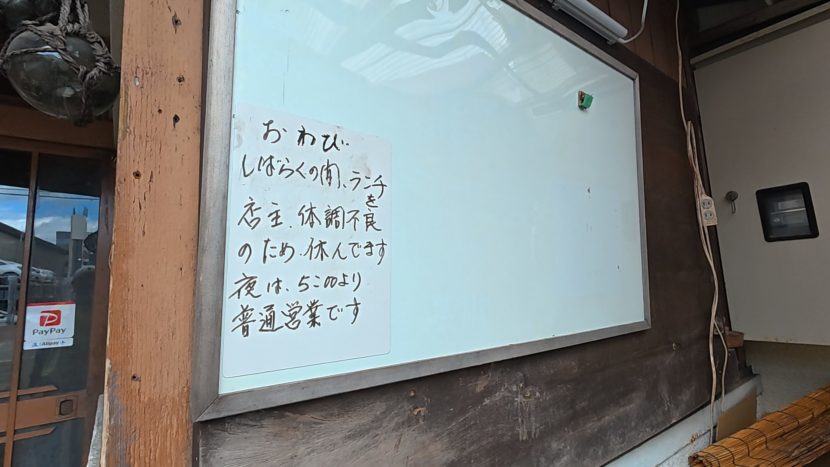 おわび
しばらくの間、ランチ
を
店主、体調不良
のため、休んでます
夜は、5:00より
普通営業です
PayPay
Alipay